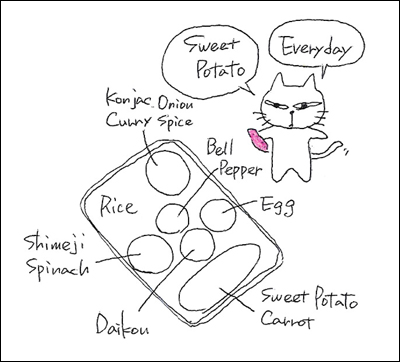 Sweet
Potato
Everyday
Konjac Onion
Curry Spice
Bell
Pepper
Rice
Egg
Shimeji
Spinach
Daikon
Sweet Potato
Carrot